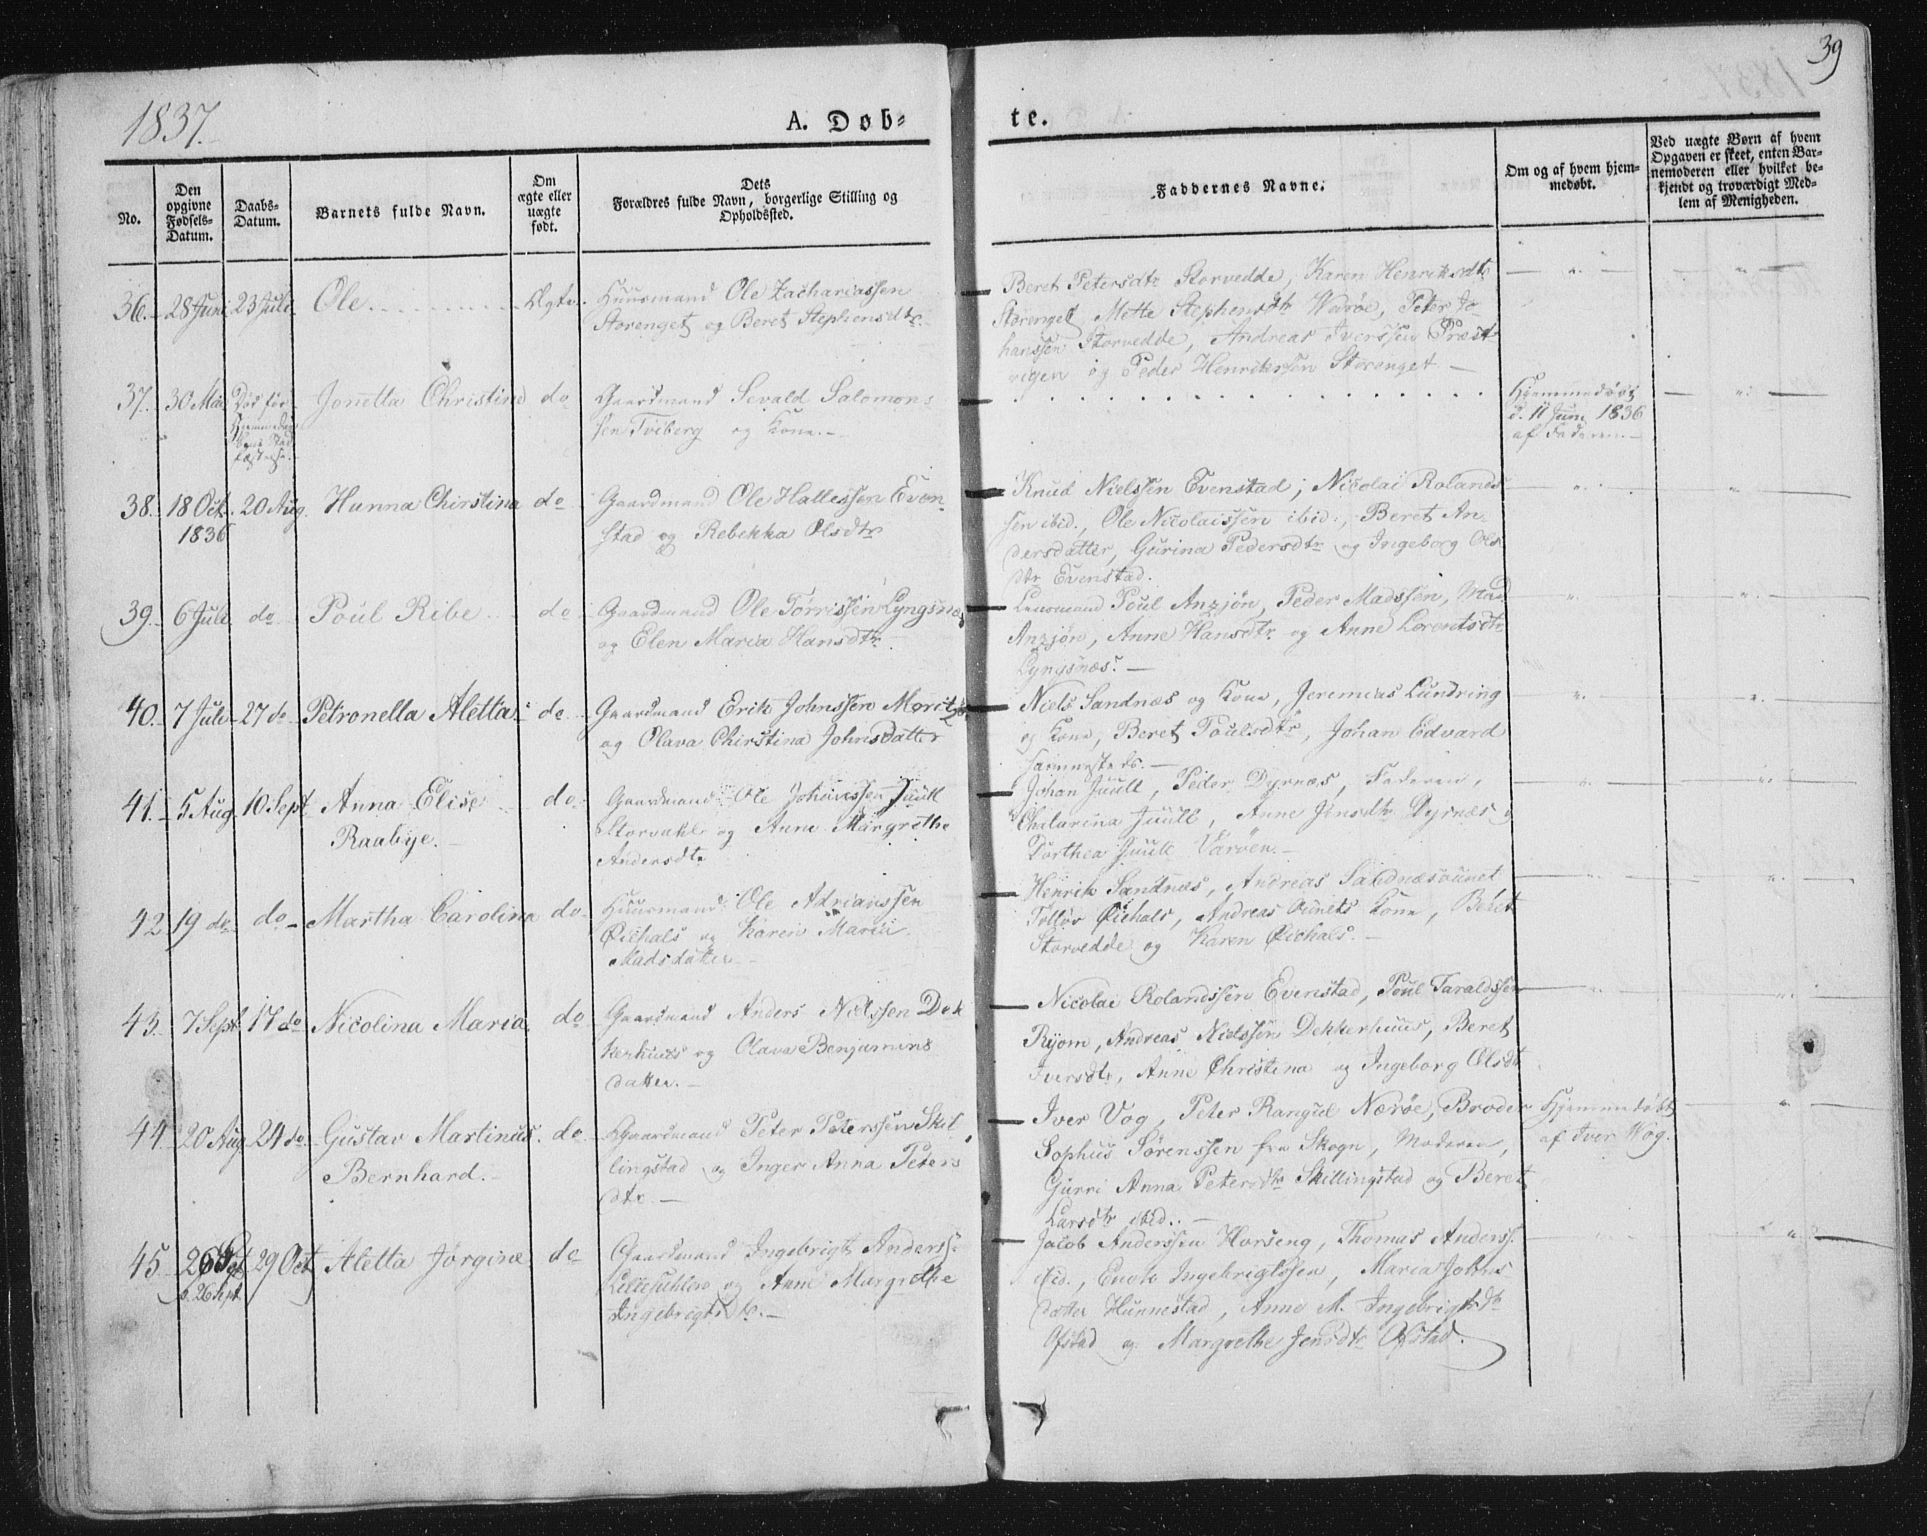 1837.
A. Døb-
te.
39
No.
Den opgivne Fødsels-Datum.
Daabs-Datum.
Barnets fulde Navn.
Om ægte eller uægte født.
Dets Forældres fulde Navn, borgerlige Stilling og Opholdssted.
Faddernes Navne.
Om og af hvem hjem-
medøbt.
Ved uægte Børn af hvem
Opgaven er skeet, enten Bar-
nemoderen eller hvilket be-
kjendt og troværdigt Med-
lem af Menigheden.
36. 28 Juni 23 Juli Ole Ægte
Huusmand Ole Zachariassen
Storenget og Beret Stephensdtr
Beret Petersdtr Storvedde, Karen Henriksdtr
Storenget, Mette Stephensdtr Værøe, Peter Jo-
hanssen Storvedde, Andreas Iverssen Præst-
vigen og Peder Henrikssen Storenget
37. 30 Mai Død før Jonetta Christine do
Gaardmand Sevald Salomons
sen Tviberg og Kone.
Hjemmedøbt
d. 11 Juni 1836
af Faderen.
38. 18 Oct. 20 Aug. Hanna Chirstina do
1836
Gaardmand Ole Hallessen Even-
stad og Rebekka Olsdtr
Knud Nielssen Evenstad, Nicolai Rolands
sen ibid., Ole Nicolaissen ibid., Beret An-
dersdatter, Gurina Pedersdtr og Ingeborg Ols
dtr Evenstad.
39. 6 Juli do Poul Ribe do
Gaardmand Ole Tørrissen Lyngsnæs
og Elen Maria Hansdtr
Lensmand Poul Anzjøn, Peder Madssen, Mad
Anzjøn, Anne Hansdtr og Anne Lorentsdtr
Lyngsnæs.
40. 7 Juli 27 do Petronella Aletta do
Gaardmand Erik Johnssen
og Olava Chirstina Johnsdatter
Niels Sandnæs og Kone, Jeremias Lundring
og Kone, Beret Poulsdtr, Johan Edvard
sammesteds.
41. 5 Aug. 10 Sept Anna Elise do
Raabye.
Gaardmand Ole Johanssen Juull
og Anne Margrethe
Andersdtr
Johan Juull, Peder Dyrnæs, Faderen,
Chatarina Juull, Anne Jensdtr Dyrnæs og
Dorthea Juull Værøen.
42 19 do do Martha Carolina do
Huusmand Ole Adrianssen
Øiehals og Karen Maria
Madsdatter
Henrik Sandnæs, Andreas Sandnæsvunet
Tollov Øiehals, Andreas Kone, Beret
Storvedde og Karen Øiehals.
43. 7 Sept 17 do Nicolina Maria do
Gaardmand Anders Nielssen Dek
kerhuus og Olava Benjamins
datter.
Nicolai Rolandssen Evenstad, Poul Taraldssen
Ryom, Andreas Nielssen Dekkerhuus, Beret
Iversdtr, Anne Christina og Ingeborg Olsdtr
44 20 Aug 24 do Gustav Martinus do
Bernhard.
Gaardmand Peter Peterssen Skil
lingstad og Inger Anna Peters
dtr
Iver Vog, Peter Rangul Nærøe, Broder
Sophus Sørenssen fra Skogn, Moderen,
Gurri Anna Petersdtr Skillingstad og Beret
Larsdtr ibid.
Hjemmedøbt
af Iver Wog.
45 26 Sept 29 Oct Aletta Jørgine do
b. 26 Sept.
Gaardmand Ingebrigt Anderss.
og Anne Margrethe
Ingebrigtsdtr.
Jacob Anderssen Horseng, Thomas Anderss.
ibid., Enok Ingebrigtssen, Maria Johns
datter Hunnestad, Anne M. Ingebrigtsdtr
Ofstad og Margrethe Jensdtr Ofstad.